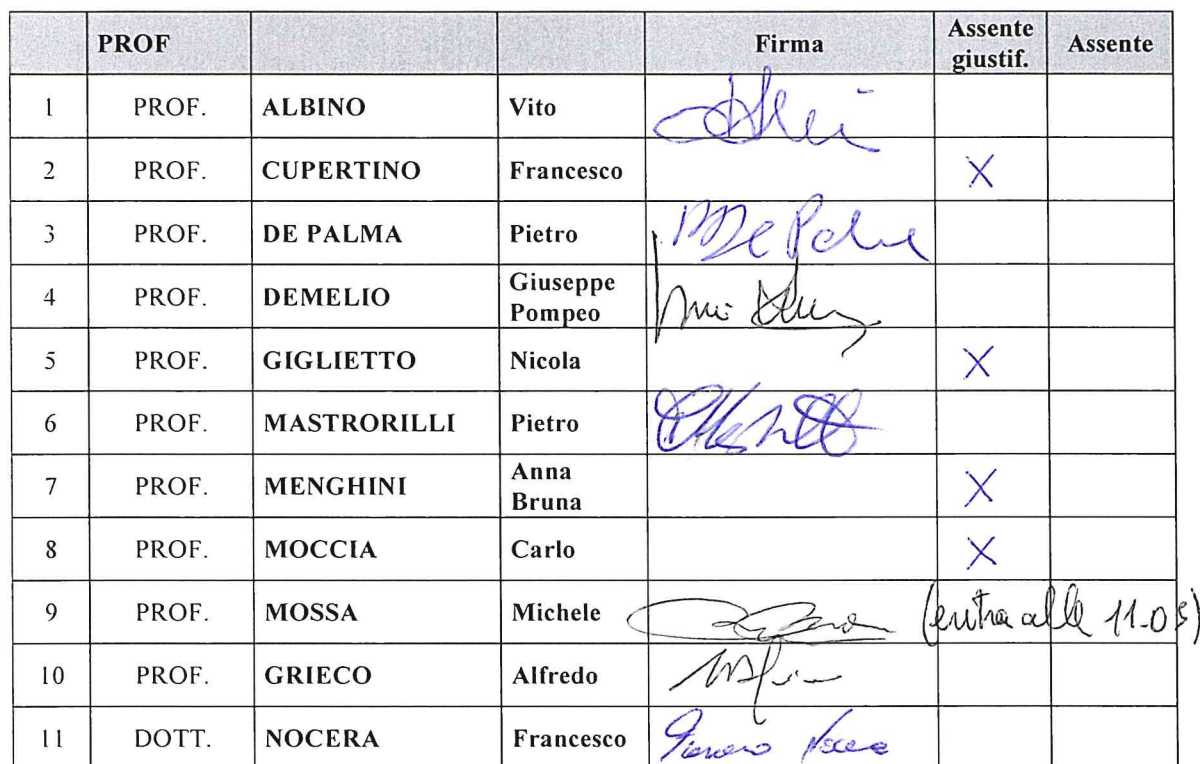 PROF Firma Assente giustif. Assente
1 PROF. ALBINO Vito
2 PROF. CUPERTINO Francesco X
3 PROF. DE PALMA Pietro De Palma
4 PROF. DEMELIO Giuseppe Pompeo
5 PROF. GIGLIETTO Nicola X
6 PROF. MASTRORILLI Pietro
7 PROF. MENGHINI Anna Bruna X
8 PROF. MOCCIA Carlo X
9 PROF. MOSSA Michele (entra alle 11.05)
10 PROF. GRIECO Alfredo
11 DOTT. NOCERA Francesco Nocera